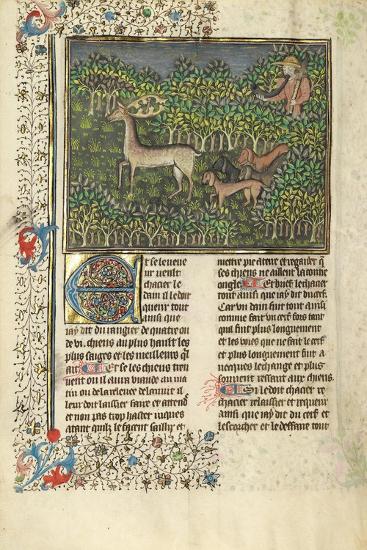 Et se le veneur
ur veult
chacier le
dain il le doit
querir tout
ainsi que
iay dit du rangier de quatre ou
de vi. chiens au plus hault les
plus saiges et les meilleurs q̄l
ait Et se les chiens
ment ou il aura viande au ma
tin ou de la relevee de la nuit il
leur doit laissier faire et attend̄
et non pas trop haster iusques
atant quilz le facent saillir et
mettre pie a terre et regarder q̄
ses chiens ne aillent la contre
ongle Et puet le chacier
tout ainsi que iay dit du cerf.
Car un dain fuit tout ainsi
comme fait un cerf fors tant
plus longuement
et les voies que ne fait le cerf
et plus longuement bat a
iacques le change et plus
souvent ressort aux chiens.
Si le doit chacier re
chacier relaissier et requerir
ainsi que iay dit du cerf et
lescorcher et le deffaire tout